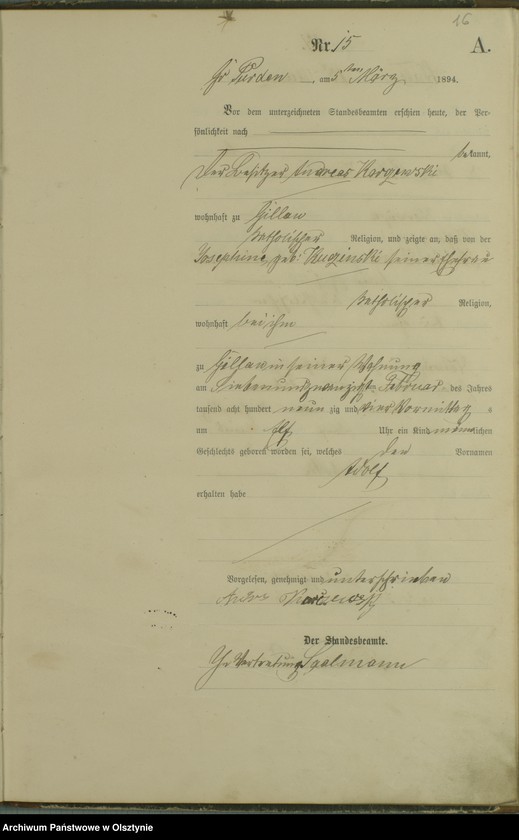 16
Nr. 15
A.
Gr. Purden, am 5ten März 1894.
Vor dem unterzeneichneten Standesbeamten erschien heute, der Per-
sönlichkeit nach
bekannt,
Der Besitzer Andreas
wohnhaft zu Hillau
katholischer Religion, und zeigte an, daß von der
Josephine, geb. seiner Ehefrau
katholischer Religion,
wohnhaft bei ihm
zu Hillau in seiner Wohnung
am Siebenundzwanzigsten Februar des Jahres
tausend acht hundert neun zig und vier Vormittag s
um elf Uhr ein Kind männlichen
Geschlechts geboren worden sei, welches den Vornamen
Adolf
erhalten habe
Vorgelesen, genehmigt und unterschrieben
Der Standesbeamte.
In Vertretung Saalmann
Archiwum Państwowe w Olsztynie